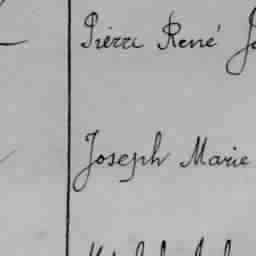 Pierre René
Joseph Marie